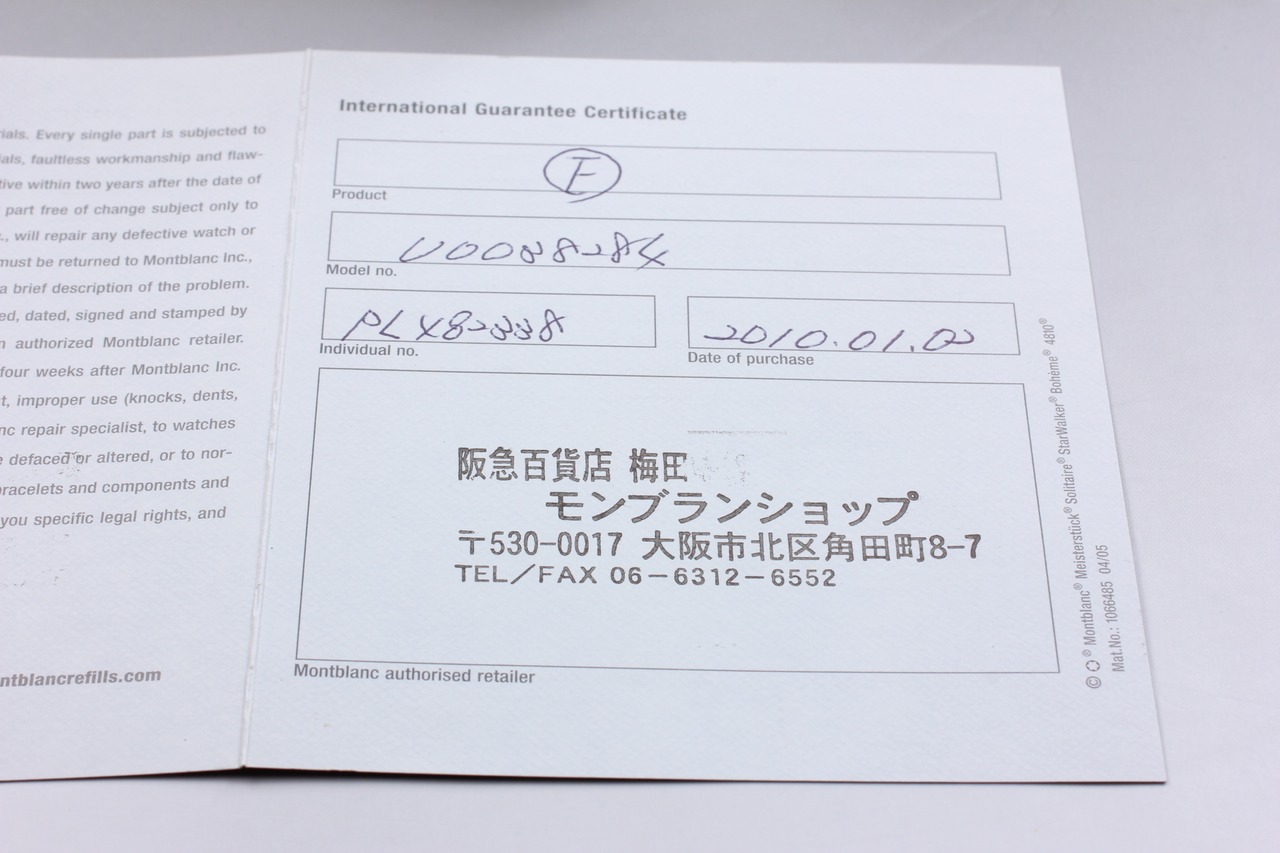 ials. Every single part is subjected to
ials, faultless workmanship and flaw-
tive within two years after the date of
part free of change subject only to
., will repair any defective watch or
must be returned to Montblanc Inc.,
a brief description of the problem.
ed, dated, signed and stamped by
n authorized Montblanc retailer.
four weeks after Montblanc Inc.
t, improper use (knocks, dents,
nc repair specialist, to watches
e defaced or altered, or to nor-
bracelets and components and
you specific legal rights, and
ntblancrefills.com
International Guarantee Certificate
F
Product
U0088284
Model no.
PLX82338
Individual no.
2010.01.02
Date of purchase
阪急百貨店 梅田
モンブランショップ
〒530-0017 大阪市北区角田町8-7
TEL/FAX 06-6312-6552
Montblanc authorised retailer
© ® Montblanc® Meisterstück® Solitaire® StarWalker® Bohème® 4810®
Mat.No.: 1066485 04/05